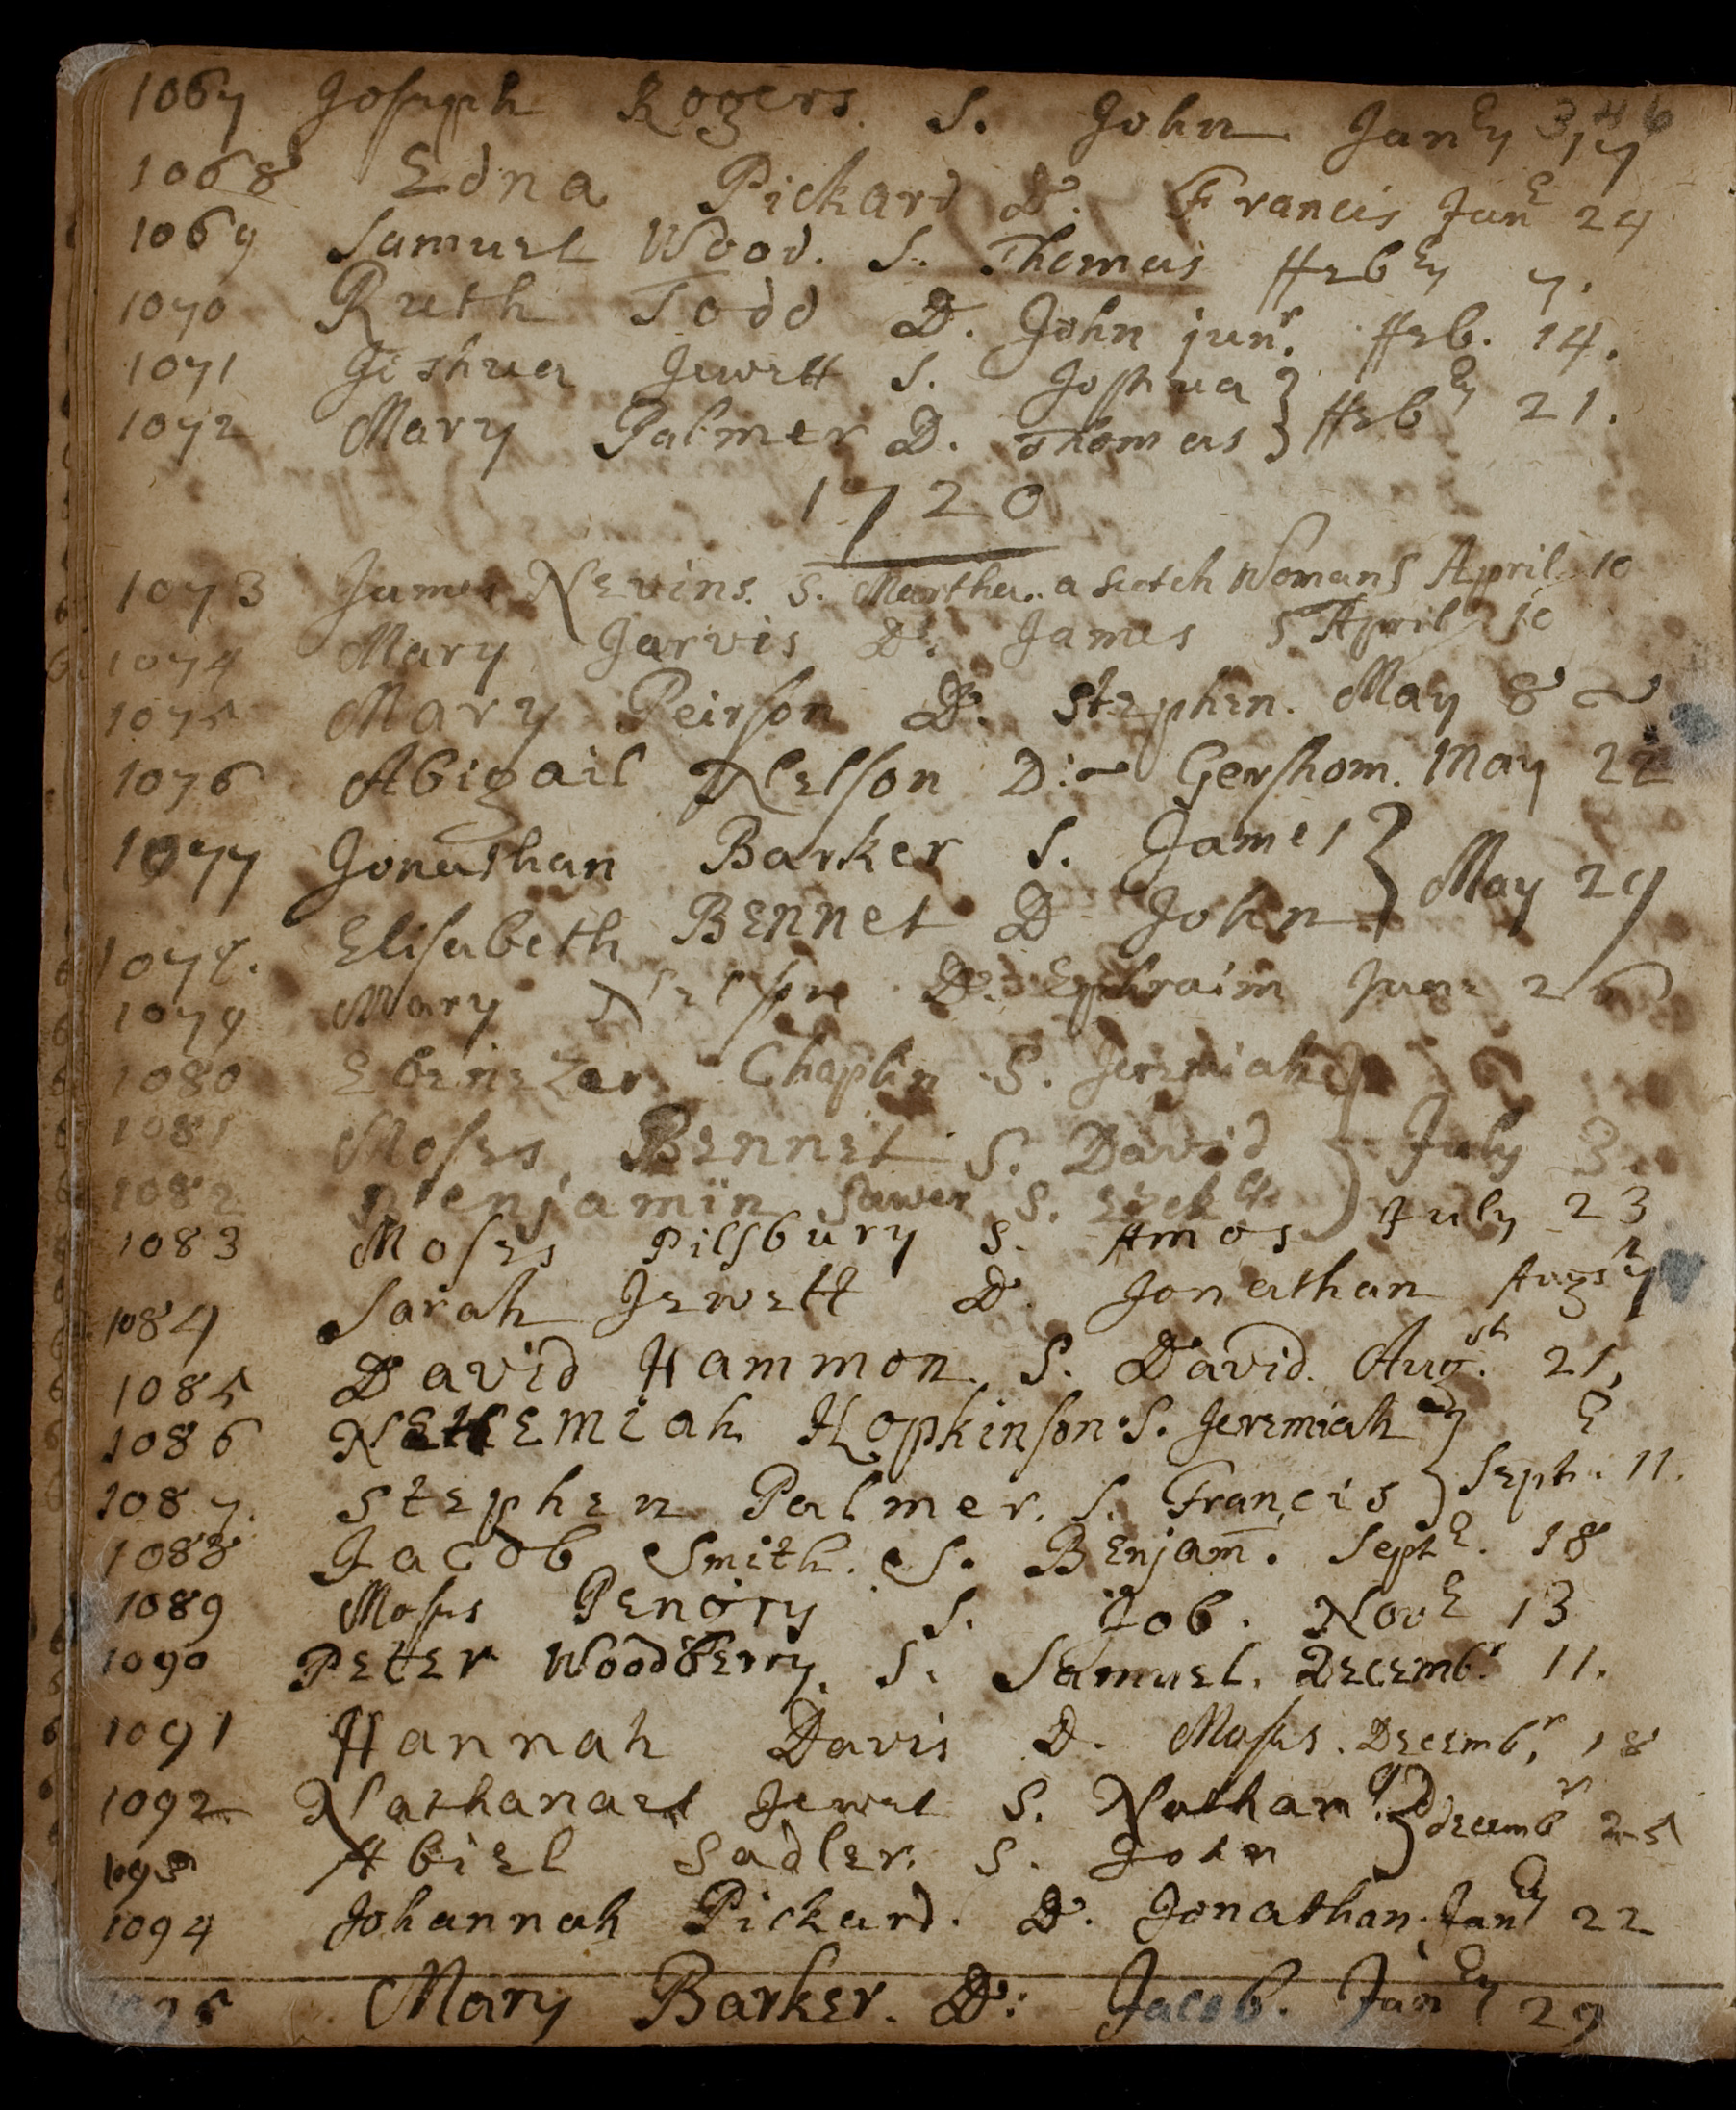 1067 Joseph Rogers. S. John Janey 17
1068 Edna Pickard D. Francis Jane 24
1069 Samuel Wood. S. Thomas Febey 7.
1070 Ruth Todd D. John junr. Feb. 14.
1071 Joshua Jewett S. Joshua } Febey 21.
1072 Mary Palmer D. Thomas }
1720
1073 James Nevins. S. Martha. a scotch Woman S April 10
1074 Mary Jarvis D. James S April 10
1075 Mary Peirson D. Stephen. May 8
1076 Abigail Nelson D: Gershom. May 22
1077 Jonathan Barker S. James } May 29
1078. Elisabeth Bennet D John }
1079 Mary Nelson D. Ephraim June 26
1080 Ebenezer Chaplin S. Jeremiah }
1081 Moses Bennet S. David } July 3.
1082 Benjamin Sawer S. Ezekll }
1083 Moses Pilsbury S. Amos July 23
1084 Sarah Jewett D. Jonathan Augst 7
1085 David Hammon S. David. Augst. 21,
1086 Nehemiah Hopkinson S. Jeremiah }
1087. Stephen Palmer. S. Francis } Septe. 11.
1088 Jacob Smith. S. Benjam. Septe. 18
1089 Moses Pengry S. Job. Nove 13
1090 Peter Woodberry. S. Samuel. Decembr 11.
1091 Hannah Davis D. Moses. Decembr, 18
1092 Nathanael Jewet S. Nathanll. } decembr 25
1093 Abiel Sadler. S. John }
1094 Johannah Pickard. D. Jonathan. Janey 22
Mary Barker. D: Jacob. Janey 29